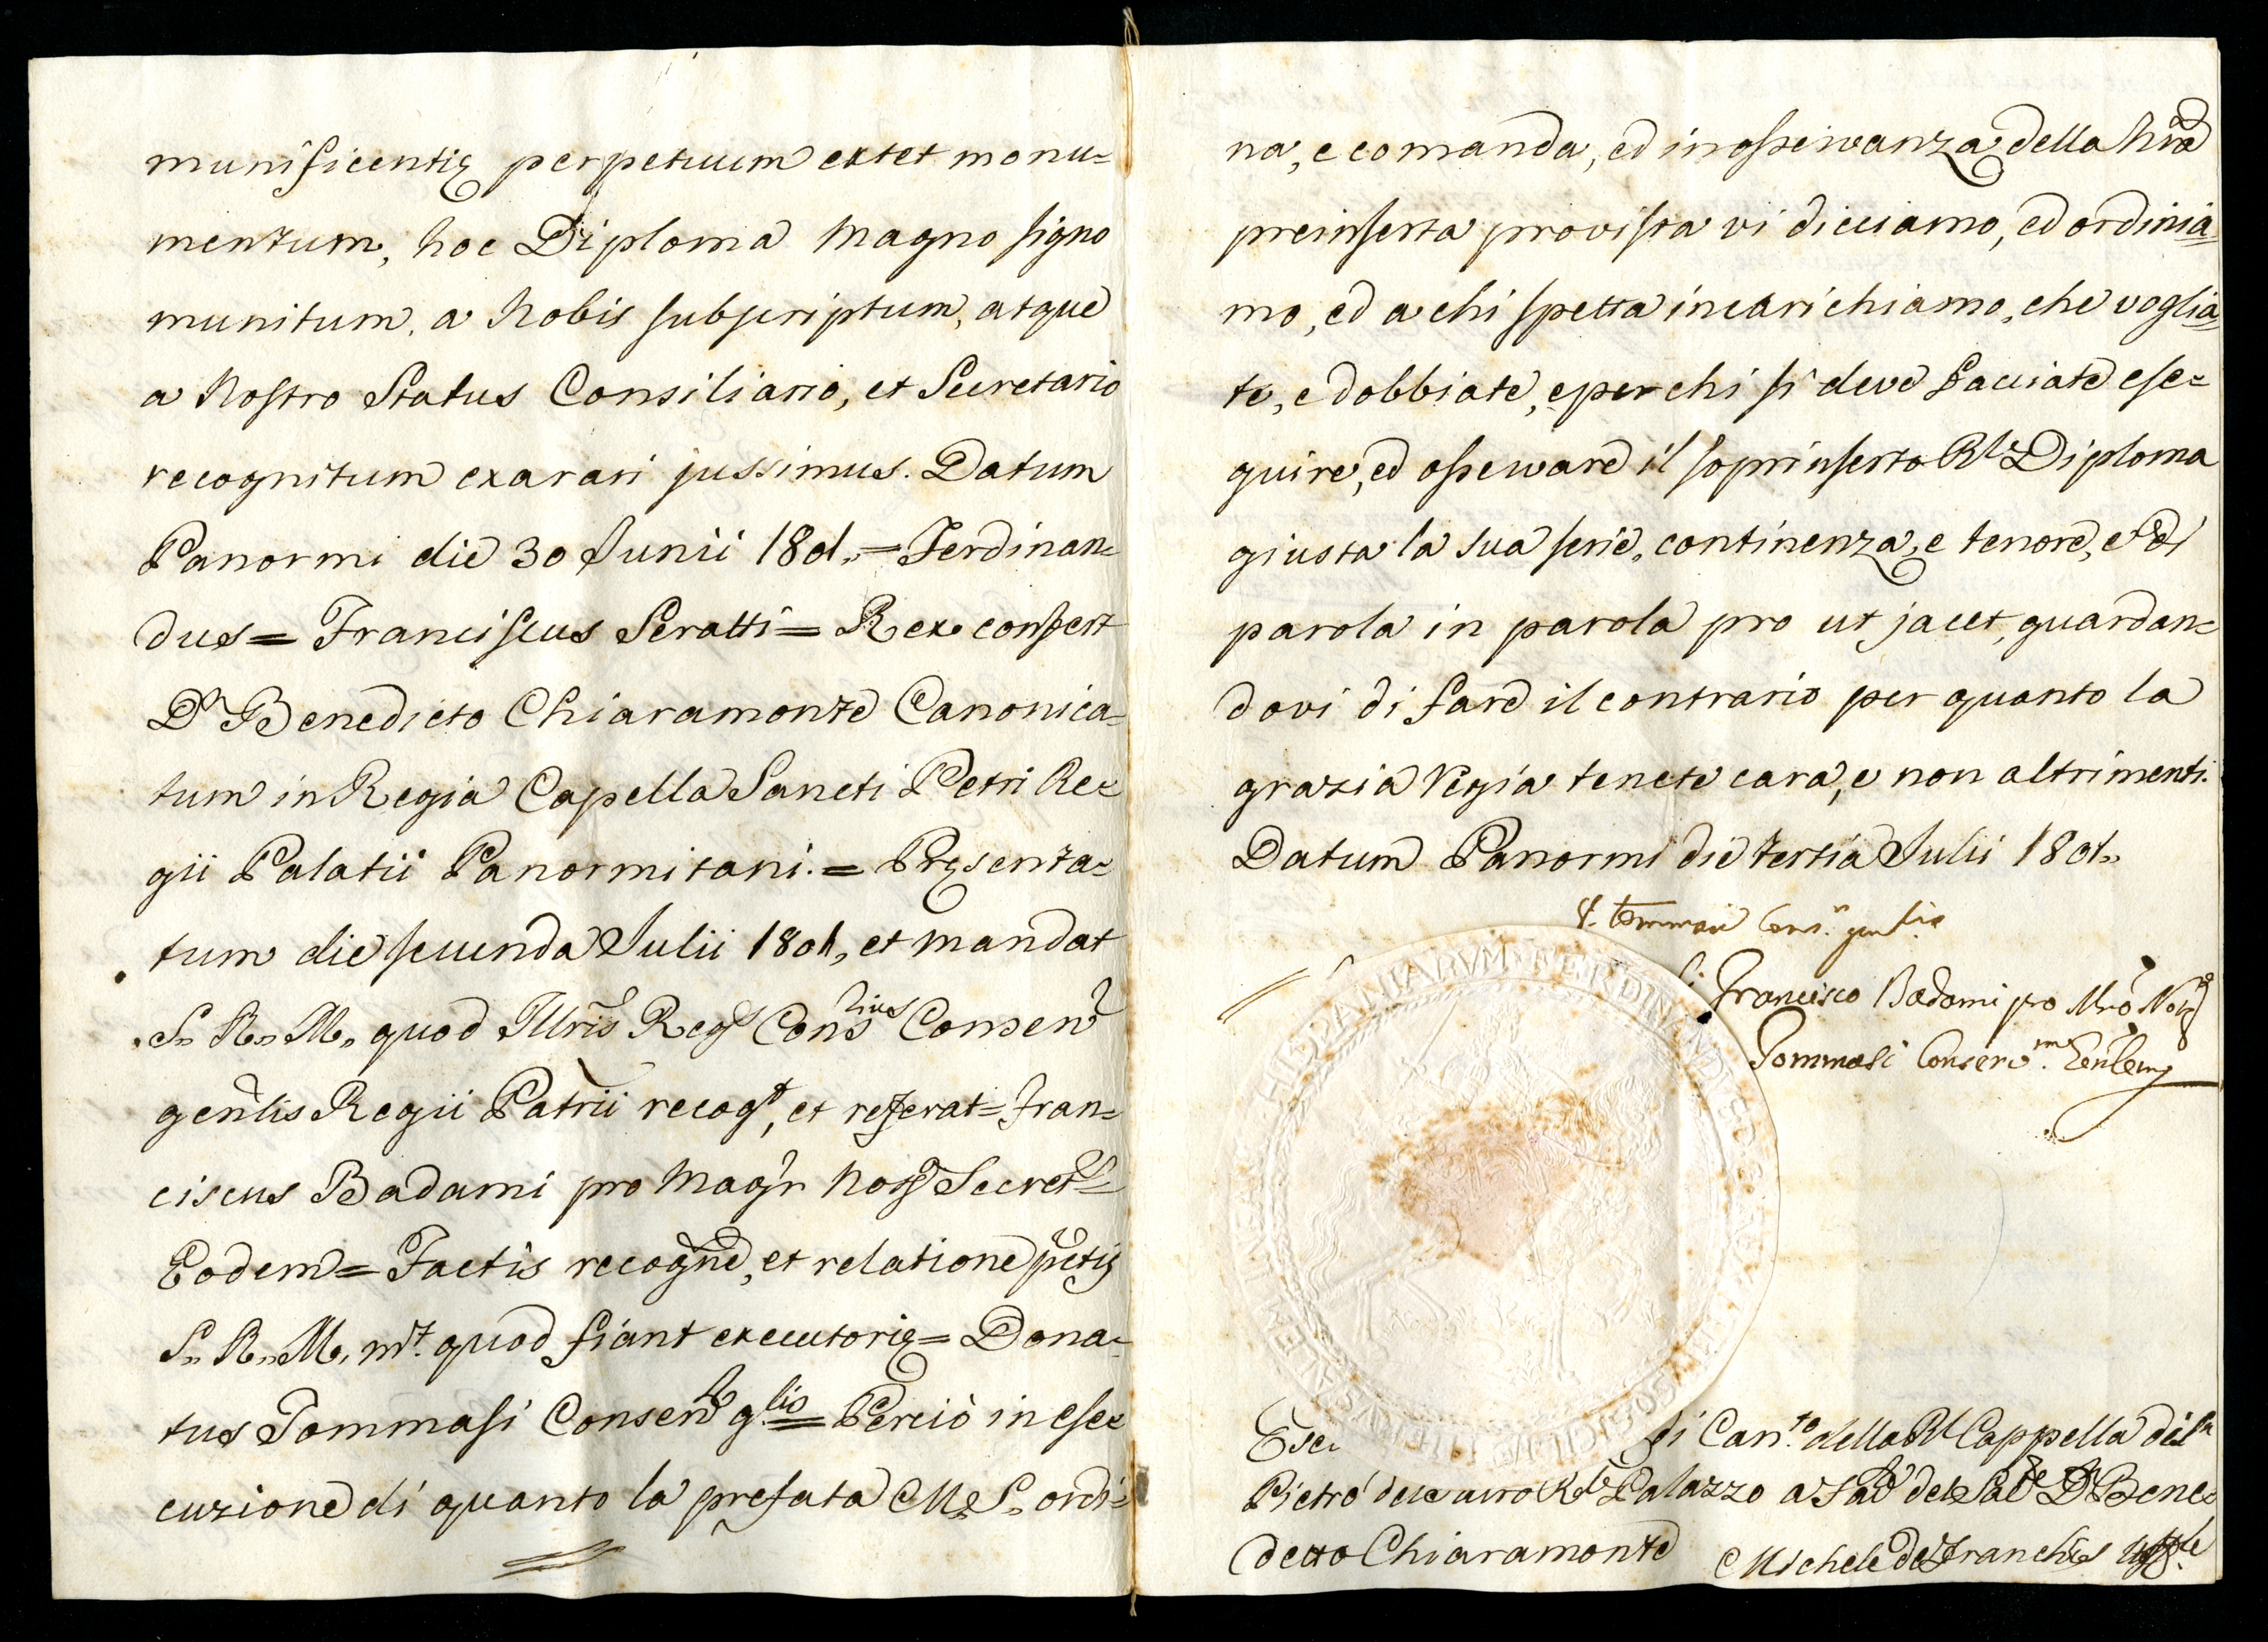 munificentię perpetuum extet monu=
mentum, hoc Diploma magno signo
munitum, a Nobis subscriptum, atque
a Nostro Status Consiliario, et Secretario
recognitum exarari jussimus. Datum
Panormi die 30 Junii 1801.= Ferdinan=
dus= Franciscus Seratti= Rex confert
Dn. Benedicto Chiaramonte Canonica=
tum in Regia Capella Sancti Petri Re=
gii Palatii Panormitani.= Pręsenta=
tum die secunda Julii 1801, et mandat
S. R. M. quod Illris Regs Conslius Conserv
genlis Regii Patrii recogt, et referat= Fran=
ciscus Badami pro Magr Nots Secret=
Eodem= Factis recogne, et relatione pctis
S. R. M. mt. quod fiant executorię= Dona=
tus Tommasi Conserv glis= Perciò in ese=
cuzione di quanto la prefata M. S. ordi=
na, e comanda, ed in osservanza della nra
preinserta provista vi dicciamo, ed ordinia=
mo, ed a chi spetta incarichiamo, che voglia=
te, e dobbiate, e per chi si deve facciate ese=
guire, ed osservare il soprinserto Rl Diploma
giusta la sua serie, continenza, e tenore, e di
parola in parola pro ut jacet, guardan=
dovi di fare il contrario per quanto la
grazia Regia tenete cara, e non altrimenti.
Datum Panormi die tertia Julii 1801.
Tommasi
HISPANIARVM FERDINANDVS
Francisco Badami pro Mro Notro
Tommasi Conserv.
di Can.to della Rl Cappella di Sn
Pietro Rle Palazzo del Sac Dn Bene=
detto Chiaramonte Michele de Franchis